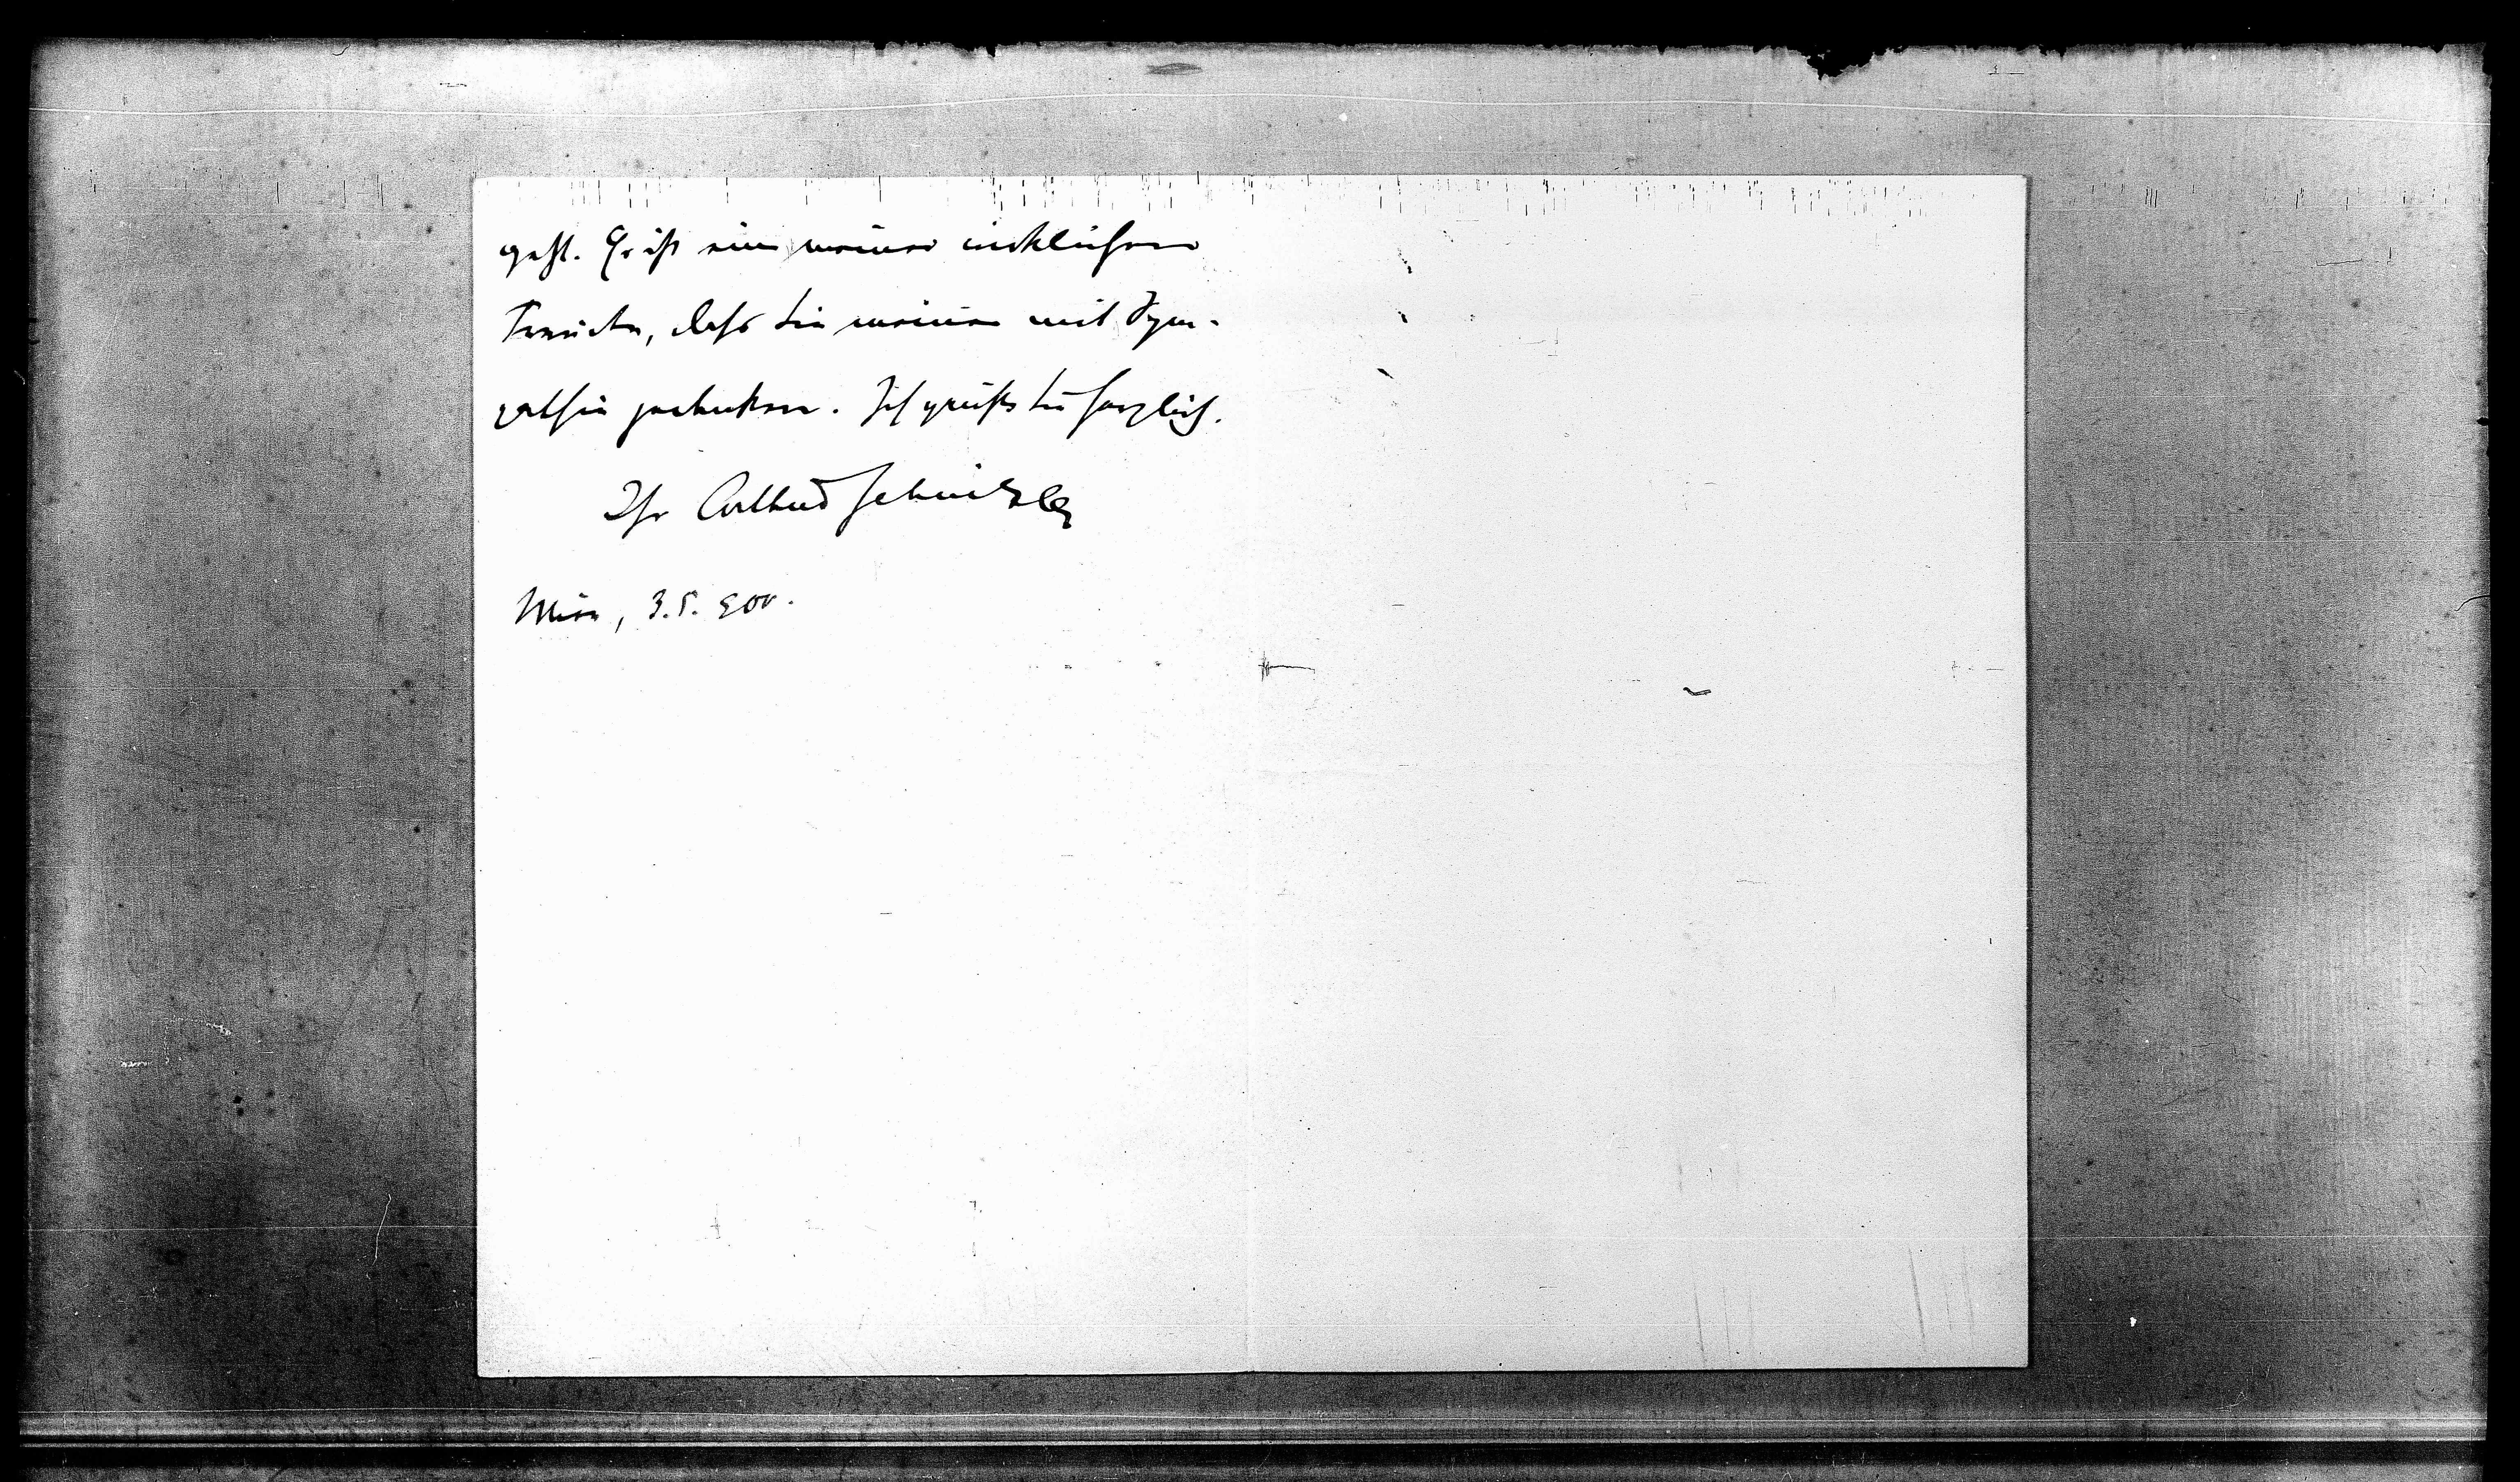 geht. Es ist eine meiner wirklichen
Freuden, daß Sie meiner mit Sym-
pathie gedenken. Ich grüße Sie herzlich.
Ihr Arthur Schnitzler
Wien, 3.5. 900.